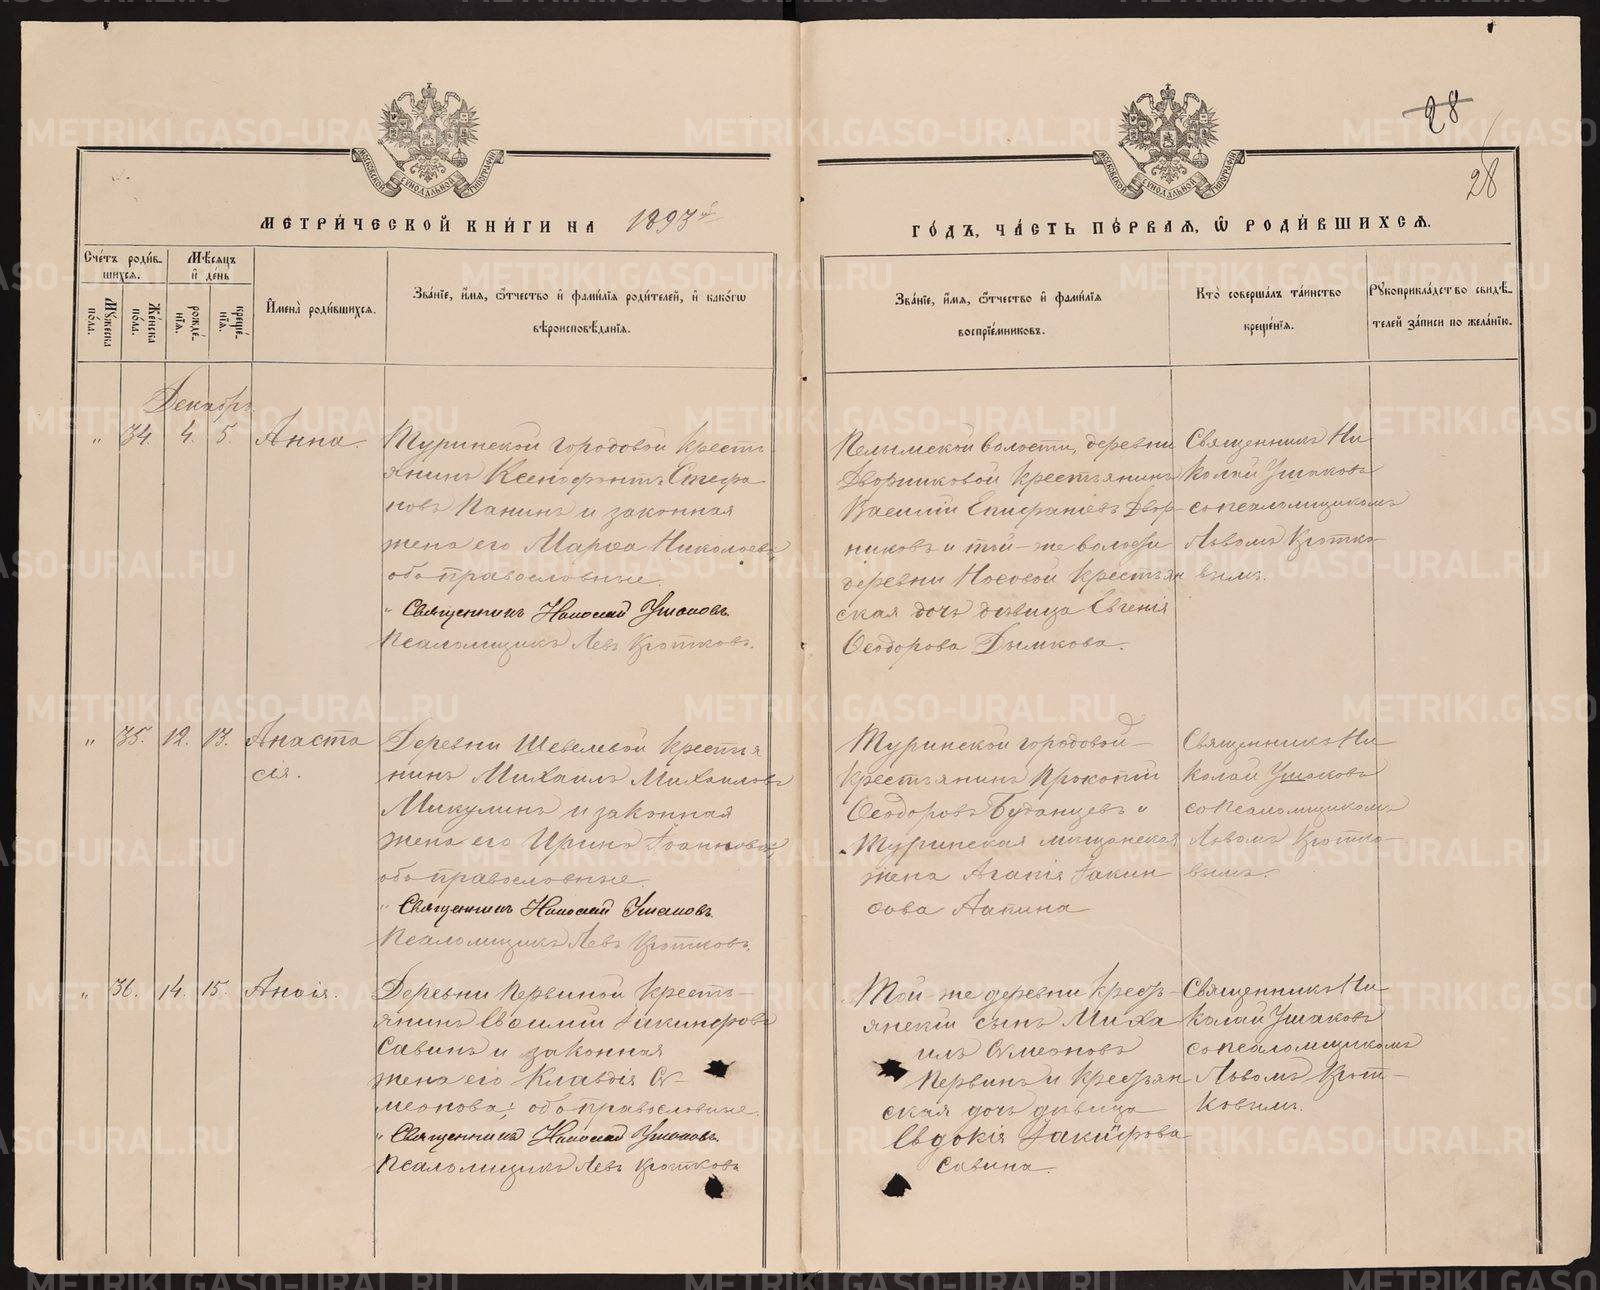 28
28
МЕТРИ́ЧЕСКОЙ КНИ́ГИ НА 1893 й
ГО́ДЪ, ЧА́СТЬ ПЕ́РВАѦ, Ѽ РОДИ́ВШИХСѦ.
Сче́тъ роди́в-
шихся.
Мѣ́сяцъ
и҆ де́нь
Мꙋ́жеска по́ла.
Же́нска по́ла.
рожде́нїѧ.
креще́нїѧ.
И҆мена̀ роди́вшихсѧ.
Зва́нїе, и҆́мѧ, ѻ҆́тчество и҆ фами́лїѧ роди́телей, и҆ како́гѡ
вѣроисповѣ́данїѧ.
Зва́нїе, и҆́мѧ, ѻ҆́тчество и҆ фами́лїѧ
воспрїе́мниковъ.
Кто̀ соверша́лъ та́инство
креще́нїѧ.
Рꙋкоприкла́дство свидѣ́-
телей за́писи по жела́нїю.
Декабрь
" 34. 4. 5. Анна.
Туринской городовой кресть
янинъ Ксенофонтъ Стефа
новъ Панинъ и законная
жена его Марѳа Николаева
оба православные.
" Священникъ Николай Ушаковъ.
Псаломщикъ Левъ Кротковъ.
Пелымской волости, деревни
Дворниковой крестьянинъ
Василий Епифаніевъ Двор-
никовъ и той-же волости
деревни Носовой крестьян
ская дочь девица Евгенія
Ѳеодорова Дымкова.
Священникъ Ни
колай Ушаковъ
съ псаломщикомъ
Львомъ Кротко-
вымъ.
" 35. 12. 13. Анаста
сія.
Деревни Шевелевой крестья
нинъ Михаилъ Михаиловъ
Микулинъ и законная
жена его Ирина Іоаннова;
оба православные.
" Священникъ Николай Ушаковъ.
Псаломщикъ Левъ Кротковъ.
Туринской городовой-
крестьянинъ Прокопій
Ѳеодоровъ Буданцевъ и
Туринская мещанская
жена Агапія Іакин
ѳова Лапина
Священникъ Ни-
колай Ушаковъ
съ псаломщикомъ
Львомъ Кротко-
вымъ.
" 36. 14. 15. Анисія.
Деревни Первиной кресть-
янинъ Василій Іакинфовъ
Савинъ и законная
жена его Клавдія Си-
меонова; оба православные.
" Священникъ Николай Ушаковъ.
Псаломщикъ Левъ Кротковъ
Той-же деревни кресть-
янскій сынъ Миха
илъ Симеоновъ
Первинъ и крестьян
ская дочь девица
Евдокія Іакинфова
Савина.
Священникъ Ни-
колай Ушаковъ
съ псаломщикомъ
Львомъ Крот-
ковымъ.
METRIKI.GASO-URAL.RU